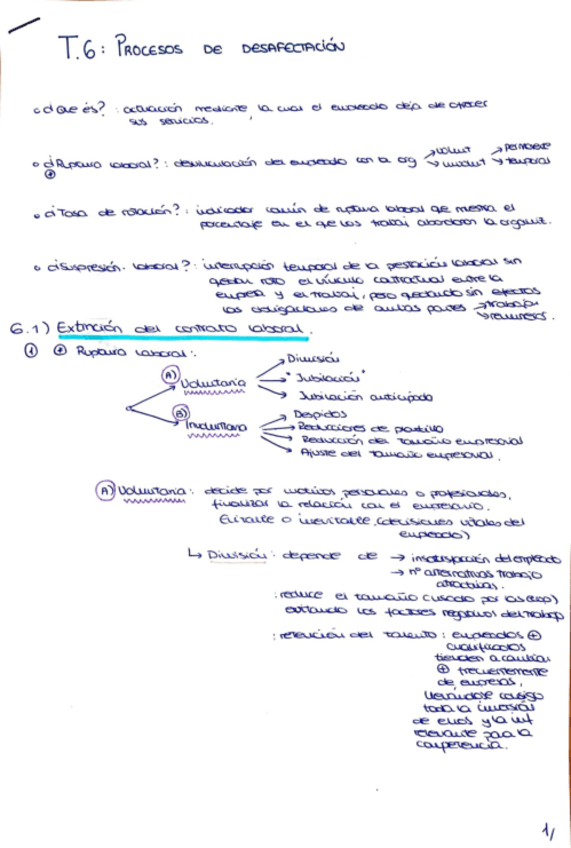 T.6: PROCESOS DE DESAFECTACIÓN
o ¿Qué és?: actuación mediante la cual el empleado deja de ofrecer
sus servicios.
o ¿Ruptura laboral?: desvinculación del empleado con la org → volunt → permanente
⊕ → involunt → temporal
o ¿Tasa de rotación?: indicador común de ruptura laboral que muestra el
porcentaje en el que los trabaj abandonan la organizt.
o ¿Suspensión laboral?: interrupción temporal de la prestación laboral sin
quedar roto el vínculo contractual entre la
empresa y el trabaj, pero quedando sin efectos
las obligaciones de ambas partes → trabajar
→ remunerar.
6.1) Extinción del contrato laboral.
① ⊕ Ruptura laboral:
A) Voluntaria → Dimisión
→ "Jubilación"
→ Jubilación anticipada
B) Involuntaria → Despidos
→ Reducciones de plantilla
→ Reducción del tamaño empresarial
→ Ajuste del tamaño empresarial.
A) Voluntaria: decide por motivos personales o profesionales,
finalizar la relación con el empresario.
Evitable o inevitable (decisiones vitales del
empleado)
↳ Dimisión: depende de → insatisfacción del empleado
→ nº alternativas trabajo
atractivas.
: reduce el tamaño (usado por las esp)
evitando los factores negativos del trabajo
: retención del talento: empleados ⊕
cualificados
tienden a cambiar
⊕ frecuentemente
de empresas,
llevándose consigo
toda la inversión
de ellos y la inf
relevante para la
competencia.
1/